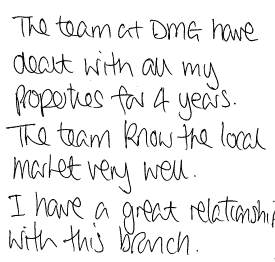 The team at DMG have
dealt with all my
properties for 4 years.
The team know the local
market very well.
I have a great relationshi
with this branch.